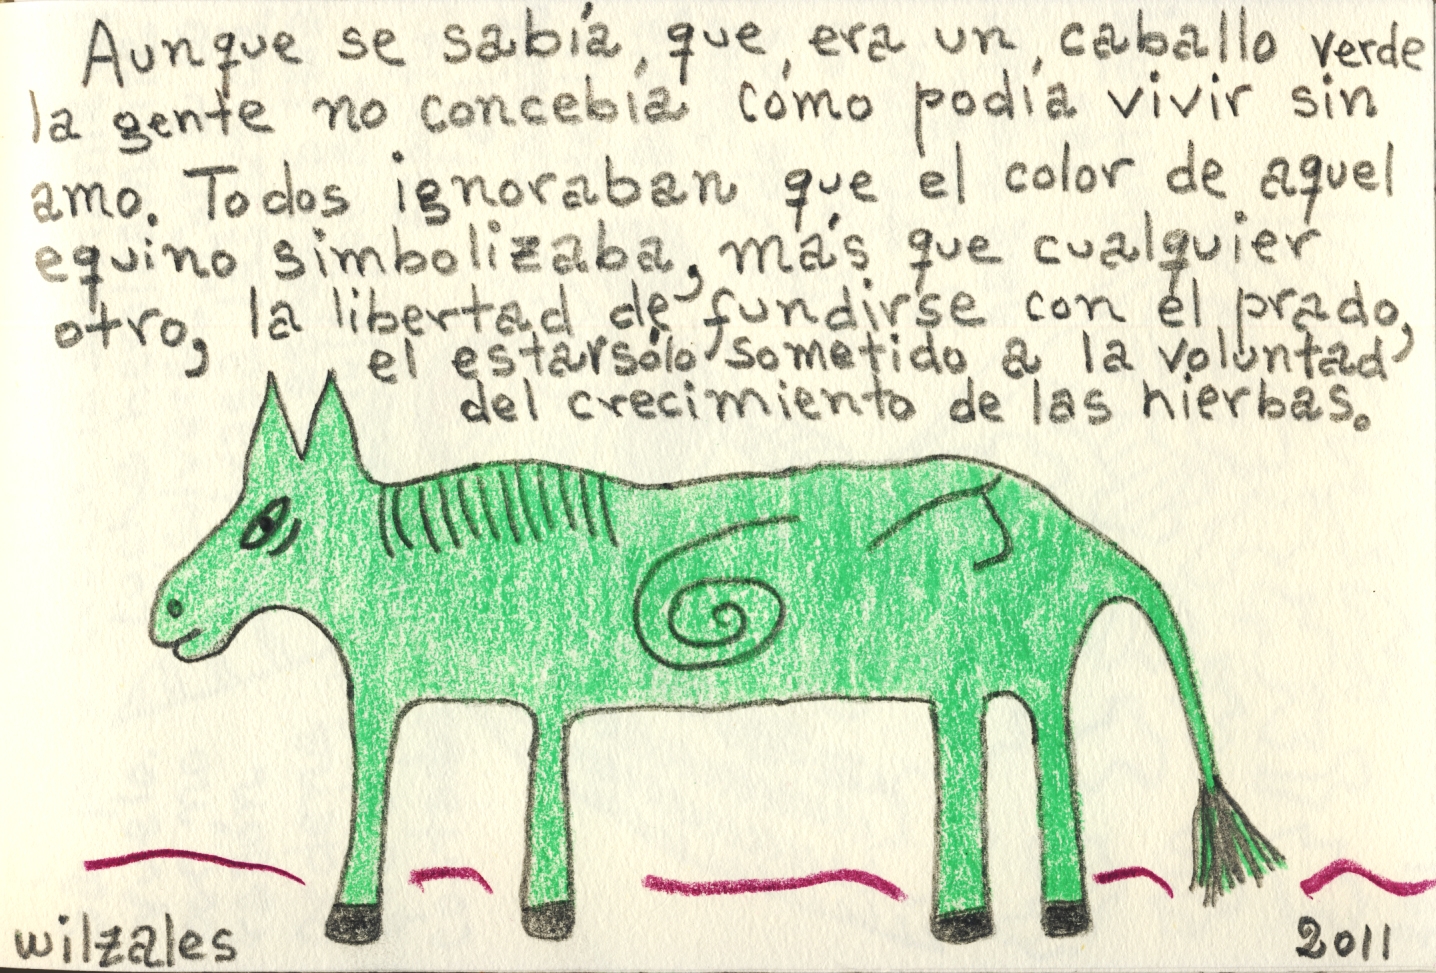 Aunque se sabía, que, era un, caballo verde
la gente no concebía cómo podía vivir sin
amo. Todos ignoraban que el color de aquel
equino simbolizaba, más que cualquier
otro, la libertad de fundirse con el prado,
el estar sólo sometido a la voluntad
del crecimiento de las hierbas.
wilzales
2011